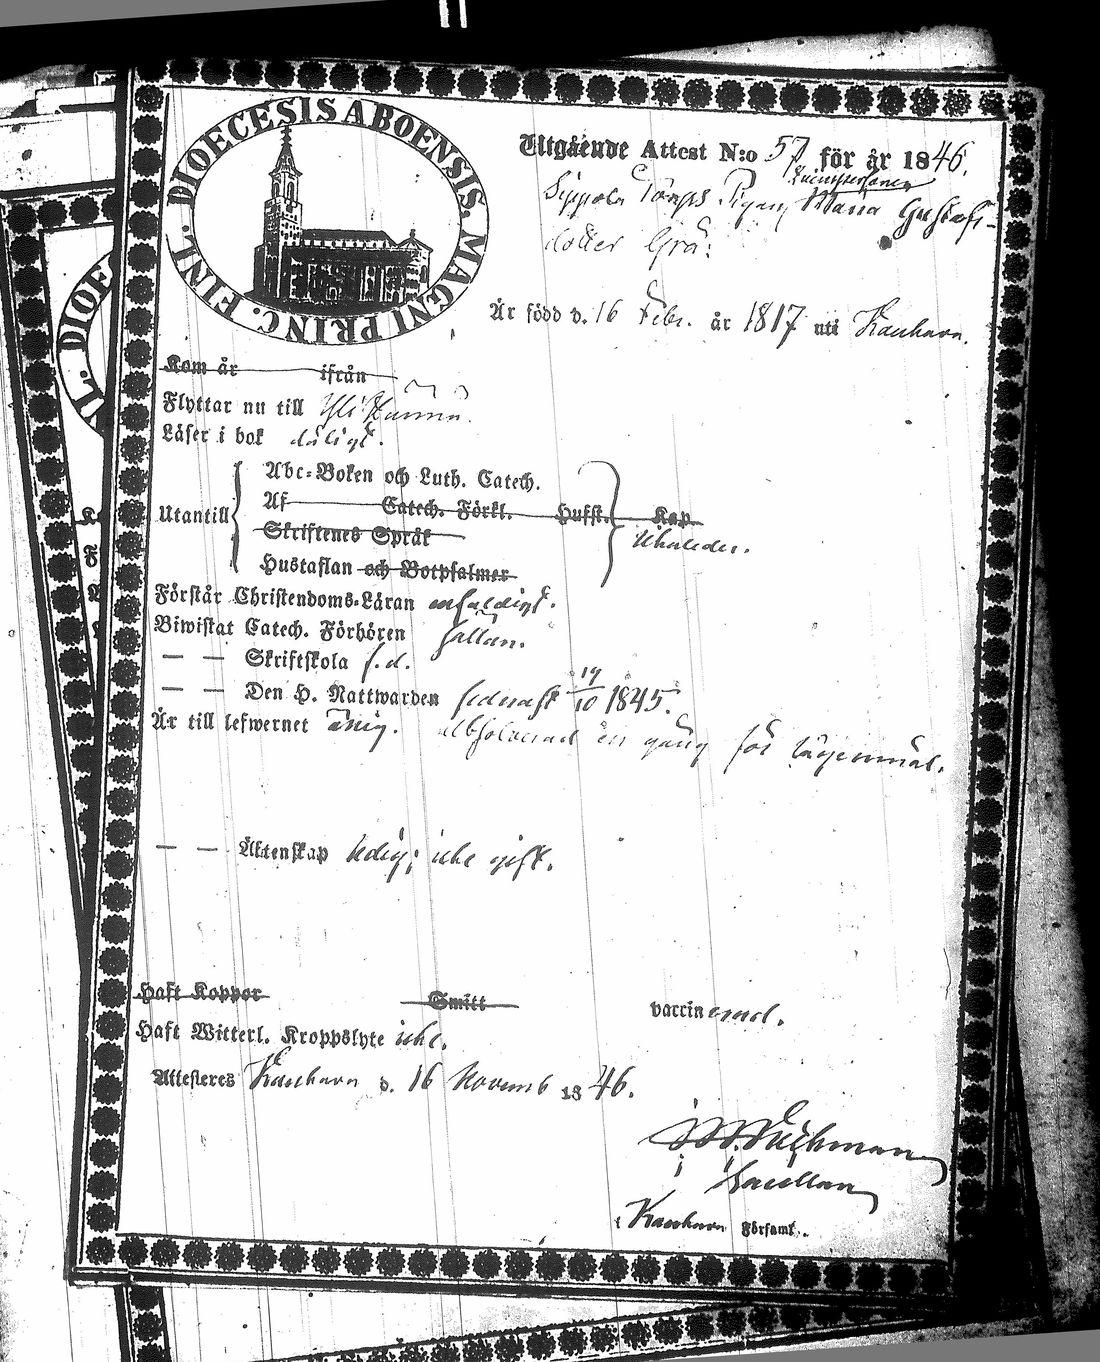 DIOECESIS ABOENSIS. MAGNI PRINC. FINL.
Utgående Attest N:o 57 för år 1846.
Qvinspersonen
Sippola Torps Pigan Maria Gustafs-
dotter Grå:
Är född d. 16 Febr. år 1817 uti Kauhava.
Kom år ifrån
Flyttar nu till Yli Härmä.
Läser i bok dåligt.
Abc-Boken och Luth. Catech.
Utantill Af Catech. Förkl. Husst. Kap
Skriftenes Språk
Hustaflan och Botpsalmer
Förstår Christendoms-Läran enfaldigt.
Biwistat Catech. Förhören sällan.
— — Skriftskola f.d.
— — Den H. Nattwarden sednast 19/10 1845.
Är till lefwernet ärlig. Absolverad en gång för lägersmål.
— — Äktenskap ledig; icke gift.
Haft Koppor Smitt vaccinerad.
Haft Witterl. Kroppslyte icke.
Attesteras Kauhava d. 16 Novemb 1846.
Kauhava Församl.
DIOE